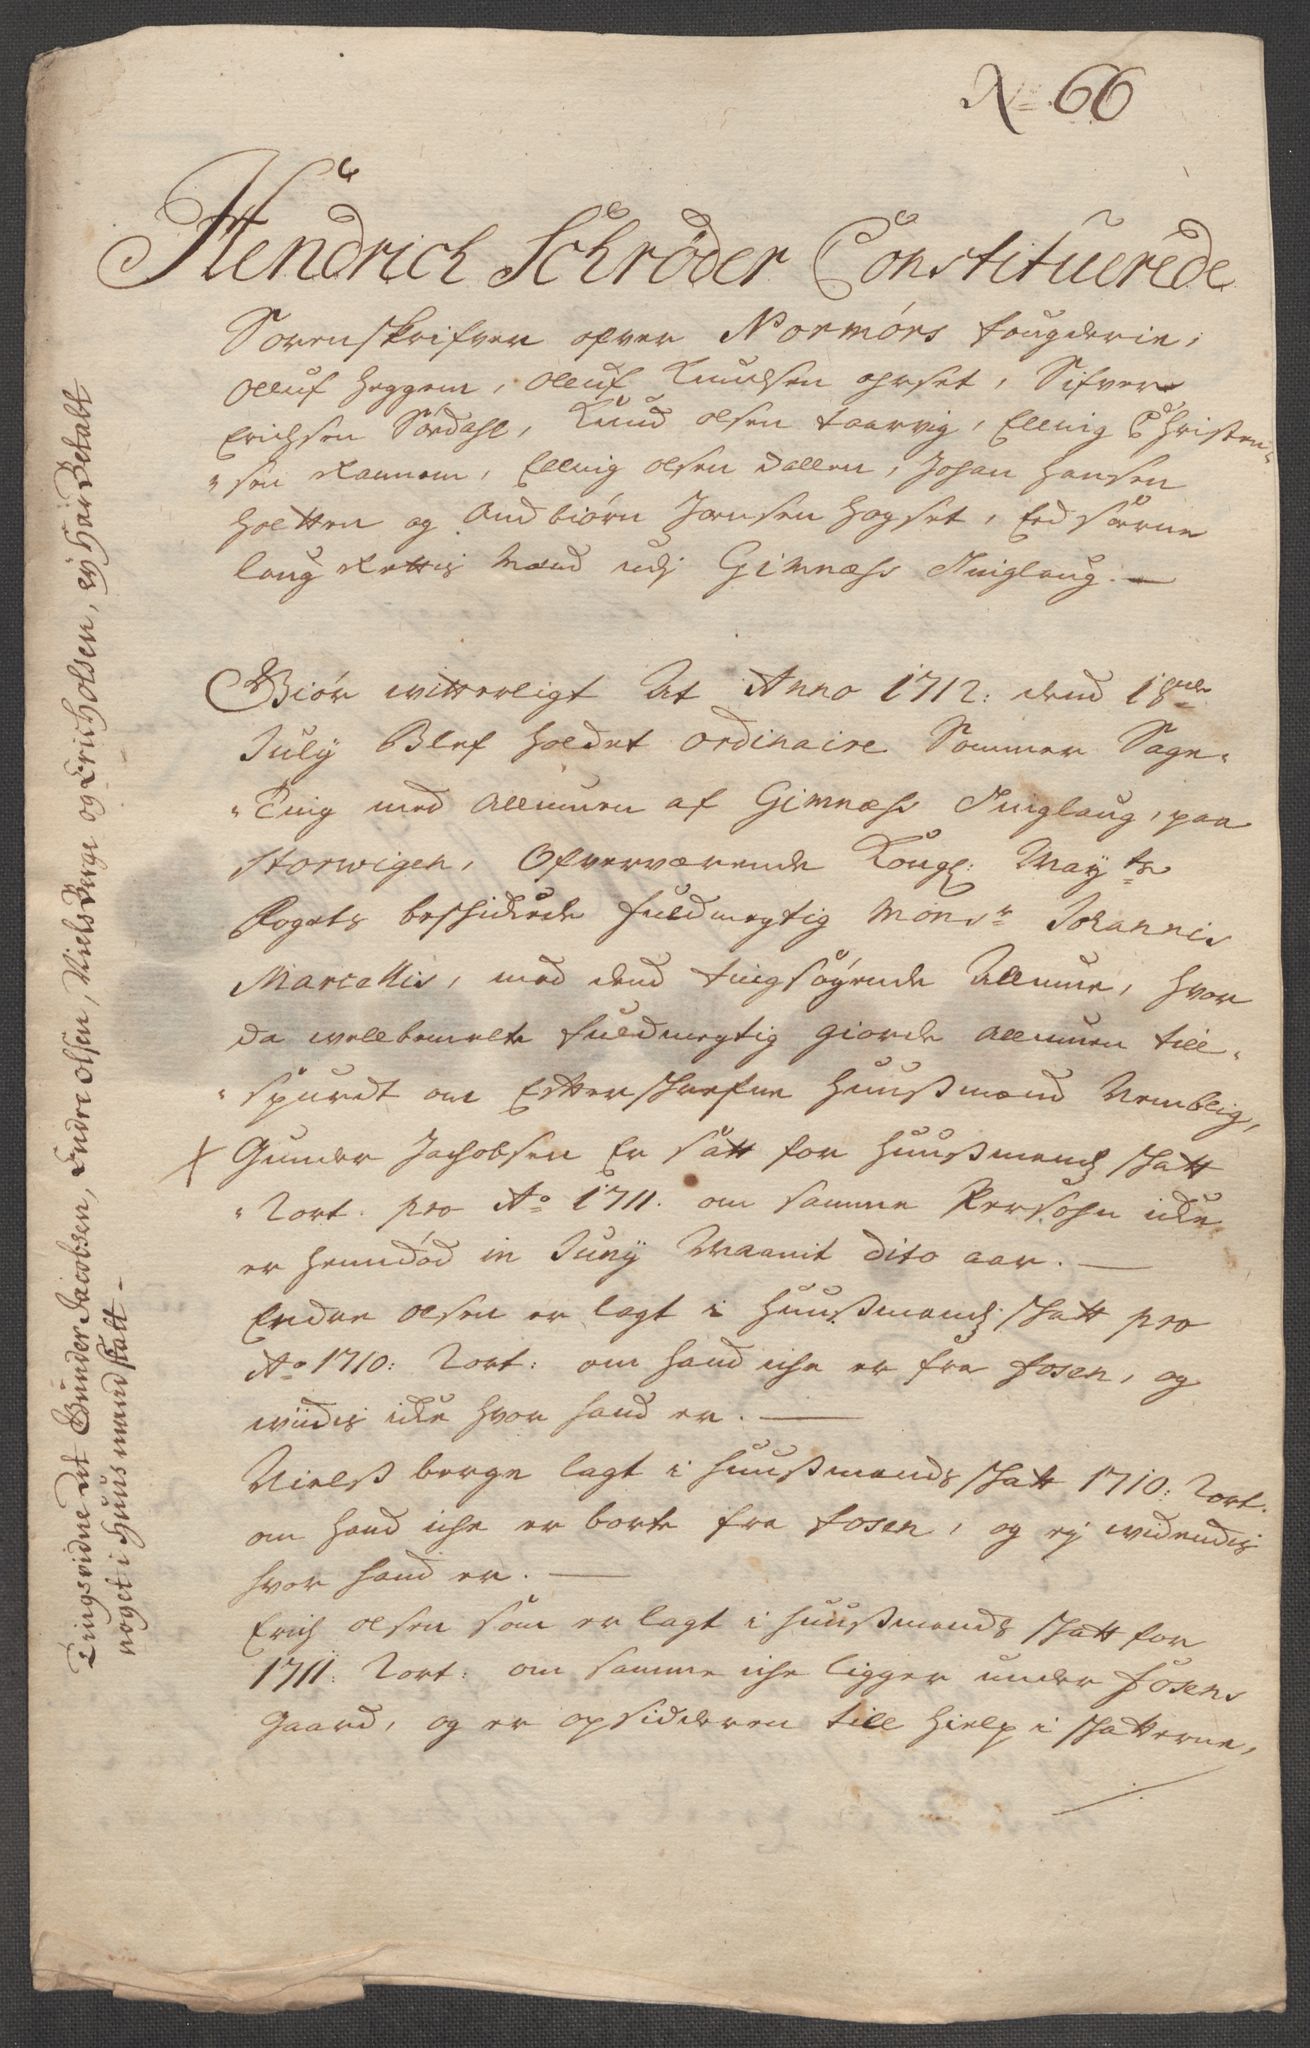 No 66
Hendrich Schrøder Constituerede
Sorenskrifver ofver Normørs fougderie,
Olluf Heggem, Olluf Knudsen Ohrset, Sifver
Erichsen Sørdahl, Knud Olsen Taarvig, Elling Christen-
-sen Rannem, Elling Olsen Dallen, Johan Hansen
Holtten og Andbiørn Jonsen Hogset, Eed sørne
laug Rettis Mænd udj Gimnæhs Tinglaug. —
Giør witterligt At Anno 1712: dend 18de
July Blef holdet ordinaire Sommer Sage-
-Ting med Allmuen af Gimnæhs Tinglaug, paa
Storwigen, Ofverværende Kongl: Mayts
Fogets beschickede fuldmegtig Monsr Johannis
Marcellis, med dend tingsøgende Allmue, hvor
da wellbemelte fuldmegtig giorde Allmuen till-
-spurdt om Efterschrefne Huusmænd Nemblig,
Gunder Jachobsen Er satt for Huusmends schatt
1 ort. pro Ao 1711. om samme Persohn icke
er henndød in Juny Maanit dito aar. —
Endre Olsen er lagt i Huusmends schatt pro
Ao 1710: 1 ort: om hand iche er fra Fosen, og
wiidis icke hvor hand er. —
Niels Berge lagt i huusmends schatt 1710: 1 ort.
om hand iche er borte fra Fosen, og ej widendis
hvor hand er. —
Erich Olsen som er lagt i huusmends schatt for
1711: 1 ort: om samme iche ligger under Fosens
Gaard, og er opsidderen till hielp i schatterne,
Tingsvidne at Gunder Jacobsen, Endre Olsen, Niels Berge og Erich Olsen, ey har Betalt
noget i Huusmand skatt –